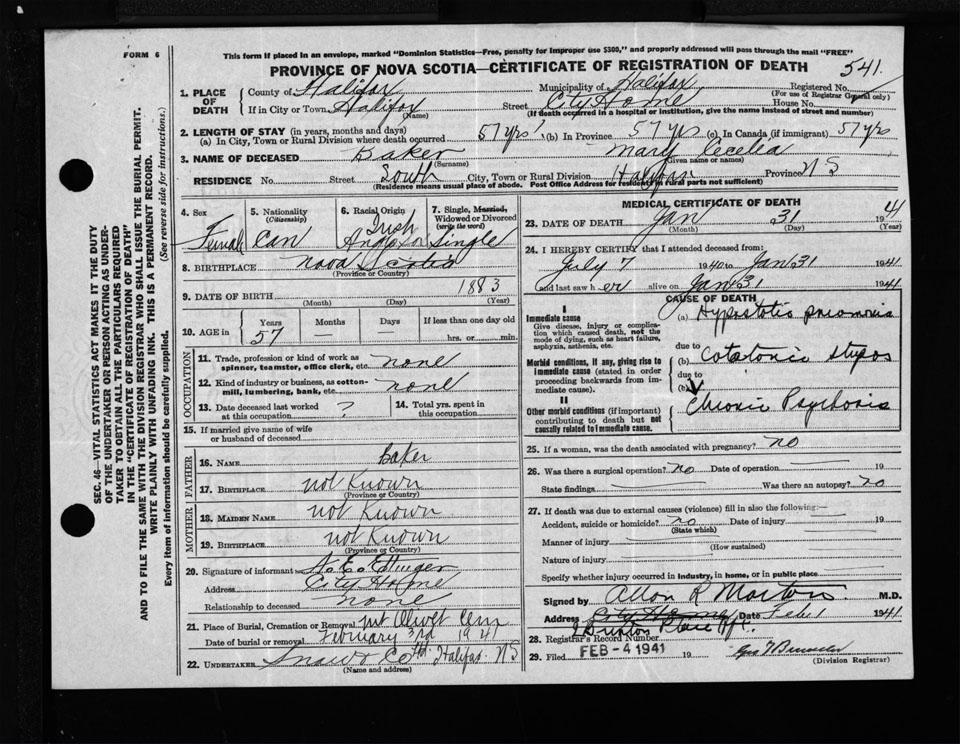 FORM 6
This form if placed in an envelope, marked "Dominion Statistics—Free, penalty for improper use $300," and properly addressed will pass through the mail "FREE"
PROVINCE OF NOVA SCOTIA—CERTIFICATE OF REGISTRATION OF DEATH
541.
1. PLACE OF DEATH
County of Halifax Municipality of Halifax Registered No.
(For use of Registrar General only)
If in City or Town Halifax Street City Home House No.
(Name) (If death occurred in a hospital or institution, give the name instead of street and number)
2. LENGTH OF STAY (in years, months and days)
(a) In City, Town or Rural Division where death occurred 57 yrs (b) In Province 57 yrs (c) In Canada (if immigrant) 57 yrs
3. NAME OF DECEASED Baker Mary Cecelia
(Surname) (Given name or names)
RESIDENCE No. Street South City, Town or Rural Division Halifax Province N S
(Residence means usual place of abode. Post Office Address for residents in rural parts not sufficient)
4. Sex
Female
5. Nationality
(Citizenship)
Can
6. Racial Origin
Irish
Anglo Sax
7. Single, Married, Widowed or Divorced
(write the word)
Single
8. BIRTHPLACE Nova Scotia
(Province or Country)
9. DATE OF BIRTH 1883
(Month) (Day) (Year)
10. AGE in
Years Months Days If less than one day old
57 hrs. or min.
OCCUPATION
11. Trade, profession or kind of work as spinner, teamster, office clerk, etc. none
12. Kind of industry or business, as cotton-mill, lumbering, bank, etc. none
13. Date deceased last worked at this occupation ?
14. Total yrs. spent in this occupation
15. If married give name of wife or husband of deceased
FATHER
16. NAME Baker
17. BIRTHPLACE not Known
(Province or Country)
MOTHER
18. MAIDEN NAME not Known
19. BIRTHPLACE not Known
(Province or Country)
20. Signature of informant
Address City Home
Relationship to deceased none
21. Place of Burial, Cremation or Removal Mt Olivet Cem
Date of burial or removal February 3rd 1941
22. UNDERTAKER Snow & Co Ltd. Halifax. N S
(Name and address)
MEDICAL CERTIFICATE OF DEATH
23. DATE OF DEATH Jan 31 1941
(Month) (Day) (Year)
24. I HEREBY CERTIFY that I attended deceased from:
July 7 1940 to Jan 31 1941
and last saw her alive on Jan 31 1941
CAUSE OF DEATH
I
Immediate cause
Give disease, injury or complication which caused death, not the mode of dying, such as heart failure, asphyxia, asthenia, etc.
(a) Hypostatic pneumonia
due to
Morbid conditions, if any, giving rise to immediate cause (stated in order proceeding backwards from immediate cause).
(b) Catatonic stupor
due to
II
Other morbid conditions (if important) contributing to death but not causally related to immediate cause.
Chronic Psychosis
25. If a woman, was the death associated with pregnancy? no
26. Was there a surgical operation? no Date of operation 19
State findings Was there an autopsy? no
27. If death was due to external causes (violence) fill in also the following:—
Accident, suicide or homicide? no Date of injury 19
(State which)
Manner of injury
(How sustained)
Nature of injury
Specify whether injury occurred in industry, in home, or in public place
Signed by Allan R Morton M.D.
Address City Home Date Feb 1 1941
28. Registrar's Record Number
29. Filed FEB - 4 1941 19
(Division Registrar)
SEC. 46—VITAL STATISTICS ACT MAKES IT THE DUTY OF THE UNDERTAKER OR PERSON ACTING AS UNDERTAKER TO OBTAIN ALL THE PARTICULARS REQUIRED IN THE "CERTIFICATE OF REGISTRATION OF DEATH" AND TO FILE THE SAME WITH THE DIVISION REGISTRAR WHO SHALL ISSUE THE BURIAL PERMIT.
WRITE PLAINLY WITH UNFADING INK. THIS IS A PERMANENT RECORD.
Every item of information should be carefully supplied. (See reverse side for instructions.)